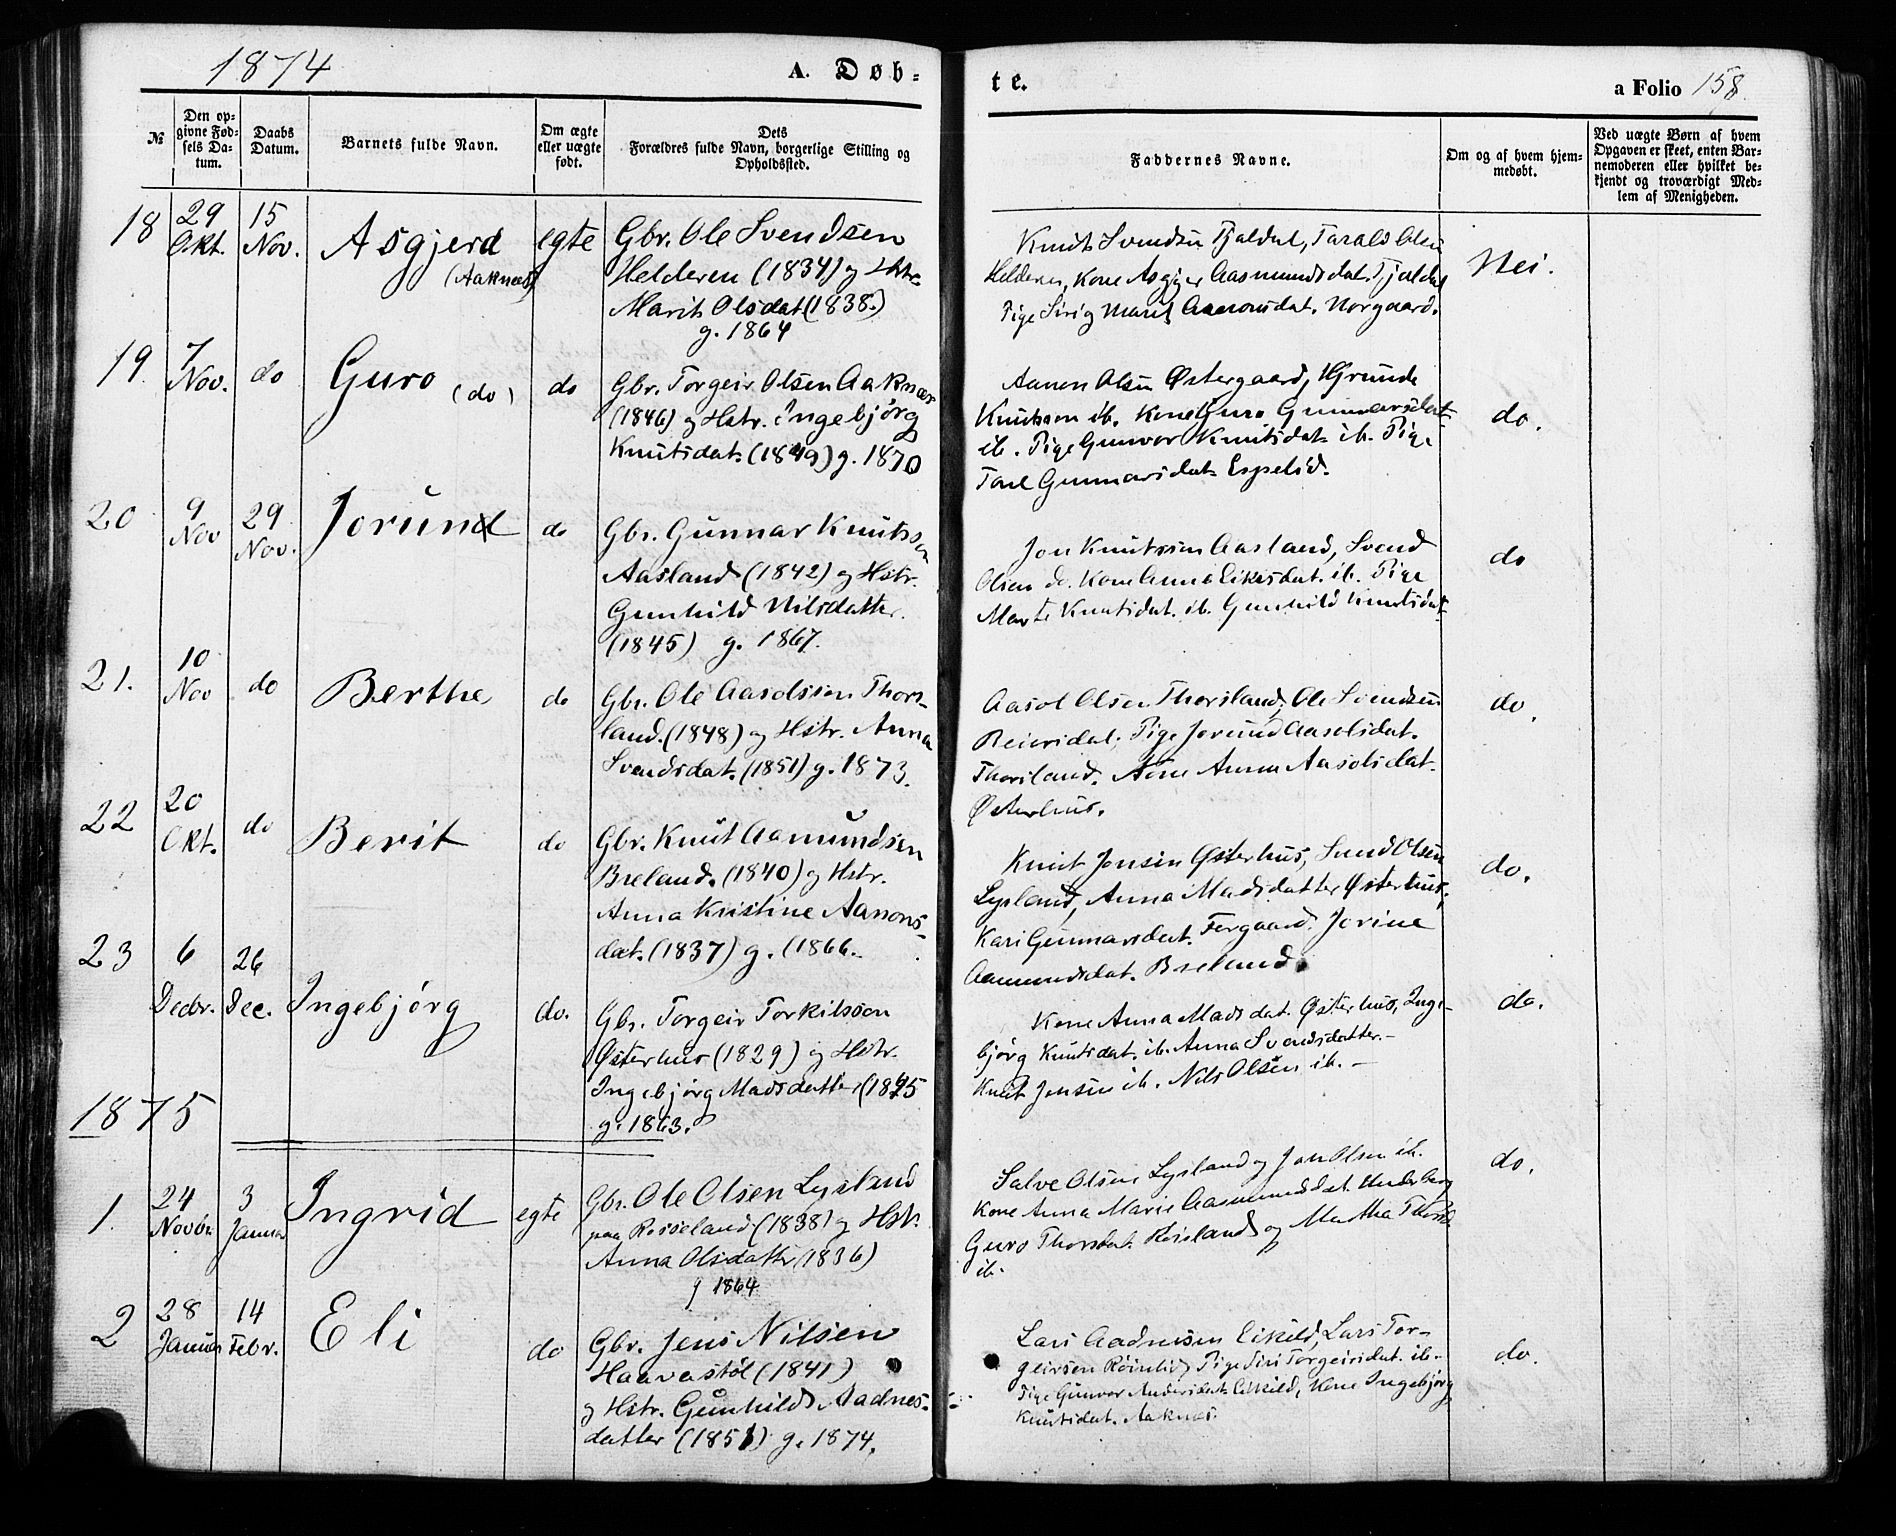 1874
A. Døb-
te.
a Folio 158.
№
Den op-
givne Fød-
sels Da-
tum.
Daabs
Datum.
Barnets fulde Navn.
Om ægte
eller uægte
født.
Dets
Forældres fulde Navn, borgerlige Stilling og
Opholdssted.
Faddernes Navne.
Om og af hvem hjem-
medøbt.
Ved uægte Børn af hvem
Opgaven er skeet, enten Bar-
nemoderen eller hvilket be-
kjendt og troværdigt Med-
lem af Menigheden.
18
29
Okt.
15
Nov.
Asgjerd
(Aaknes)
egte
Gbr. Ole Svendsen
Helderen (1834) og Hstr.
Marit Olsdat (1838.)
g. 1864
Knut Svendsen Tjaldal, Tarald Olsen
Helderen, Kone Asgjer Aasmundsdat. Tjaldal
Pige Siri og Marit Aanonsdat. Norgaard.
Nei.
19.
7
Nov.
do
Guro (do)
do
Gbr. Torgeir Olsen Aaknes
(1846) og Hstr. Ingebjørg
Knutsdat. (1849) g. 1870
Aanen Olsen Østergaard,
Knutsson ib. Kone Guro Gunnarsdat
ib. Pige Gunvor Knutsdat ib. Pige
Tone Gunnarsdat Espelid.
do.
20
9
Nov
29
Nov.
Jorund
do
Gbr. Gunnar Knutsson
Aasland (1842) og Hstr.
Gunhild Nilsdatter.
(1845) g. 1867.
Jon Knutsson Aasland, Svend
Olsen do. Kone Anna Eiksdat. ib. Pige
Marte Knutsdat. ib. Gunhild Knutsdat.
do
21.
10
Nov
do
Berthe
do
Gbr. Ole Aasolsson Thors-
land. (1848) og Hstr. Anna
Svendsdat. (1851) g. 1873.
Aasol Olsen Thorsland, Ole Svendsen
Reiersdal, Pige Jorund Aasolsdat.
Thorsland. Kone Anna Aasolsdat.
Østerhus.
do.
22
20
Okt.
do
Berit
do
Gbr. Knut Aamundsen
Breland. (1840) og Hstr.
Anna Kristine Aanons-
dat. (1837) g. (1866.
Knut Jensen Østerhus, Svend Olsen
Lysland, Anna Madsdatter Østerhus,
Kari Gunnarsdat. Fergaard. Jorine
Aamundsdat. Breland.
do.
23
6
Decbr.
26
Dec.
Ingebjörg
do.
Gbr. Torgeir Torkilsson
Østerhus (1829) og Hstr.
Ingebjørg Madsdatter (1845
g. 1863.
Kone Anna Madsdat. Østerhus, Inge-
bjørg Knutsdat. ib. Anna Svendsdatter.-
Knut Jensen ib. Nils Olsen ib. -
do.
1875
1.
24
Novbr.
3
Januar
Ingrid
egte
Gbr. Ole Olsen Lysland
paa Rosseland (1838) og Hstr.
Anna Olsdatter (1836)
g 1864
Salve Olsen Lysland og Jon Olsen ib.
Kone Anna Marie Aasmundsdat. Underberg
Guro Thorsdat. Røisland og Martha Thorsd
ib.
do.
2
28
Januar
14
Febr.
Eli
do
Gbr. Jens Nilsen
Haavastöl (1841)
og Hstr. Gunhild Aadnes-
datter (1851) g. 1874.
Lars Aadnesen Eikild, Lars Tor-
geirsen Röinlid, Pige Siri Torgeirsdat. ib.
Pige Gunvor Andersdat. Eikild, Kone Ingebjørg
Knutsdat. Aaknes.
do.